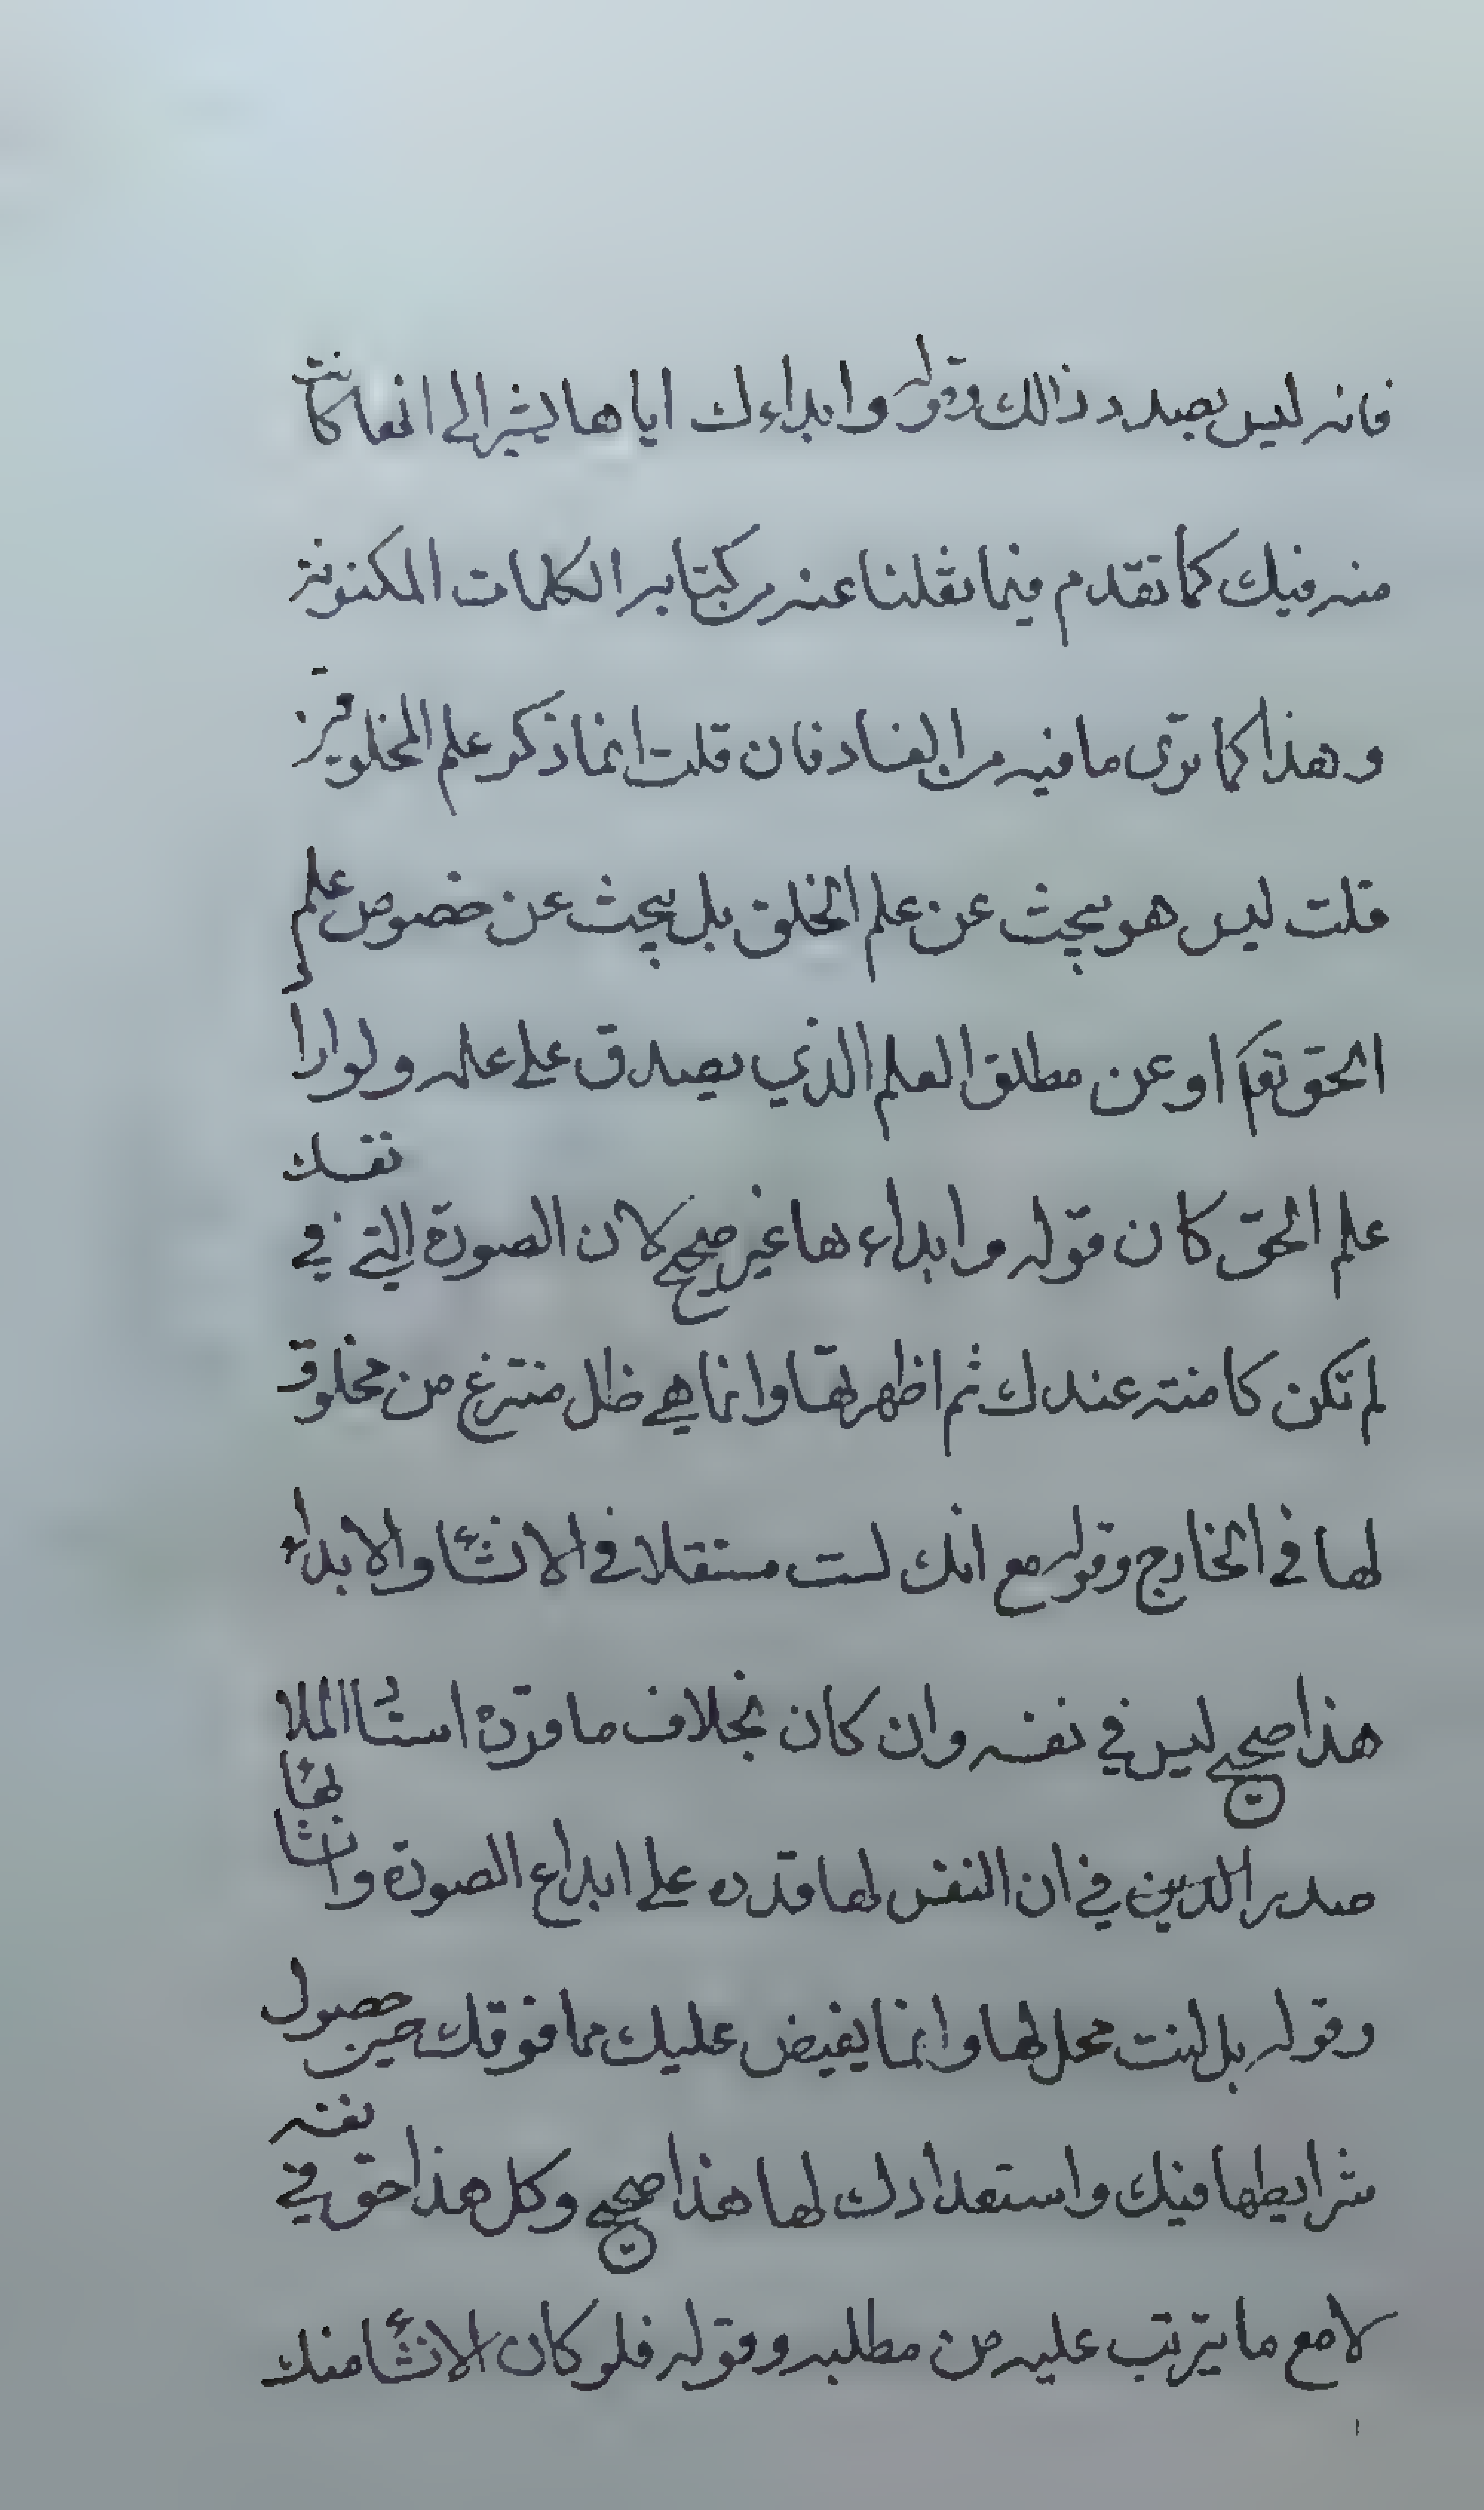 فانه ليس بصدد ذالك وقوله وابداءك اياها يشير الى انها كانت
منه فيك كما تقدم فيما نقلنا عنه من كتابه الكلمات المكنونة
وهذا كما ترى ما فيه من الفساد فان قلت انما ذكر علم المخلوقين
قلت ليس هو يبحث عن علم الخلق بل يبحث عن خصوص علم
الحق تعم او عن مطلق العلم الذي يصدق على علمه ولو اراد
علم الحق كان قوله وابداءها غير صحيح لان الصورة التي في نفسك
لم تكن كامنة عندك ثم اظهرتها وانما هي ظل منتزع من مخلوق
لها في الخارج وقوله مع انك لست مستقلا في الانشاء والابداء
هذا صحيح ليس في نفسه وان كان بخلاف ما قرره استاد الملا
صدر الدين في ان النفس لها قدره على ابداع الصورة وانشائها
وقوله بل انت محل لها وانما يفيض عليك مما فوقك حين حصول
شرايطها فيك واستعدادك لها هذا صحيح وكل هذا حق في نفسه
لا مع ما يترتب عليه من مطلبه وقوله فلو كان الانشاء منك